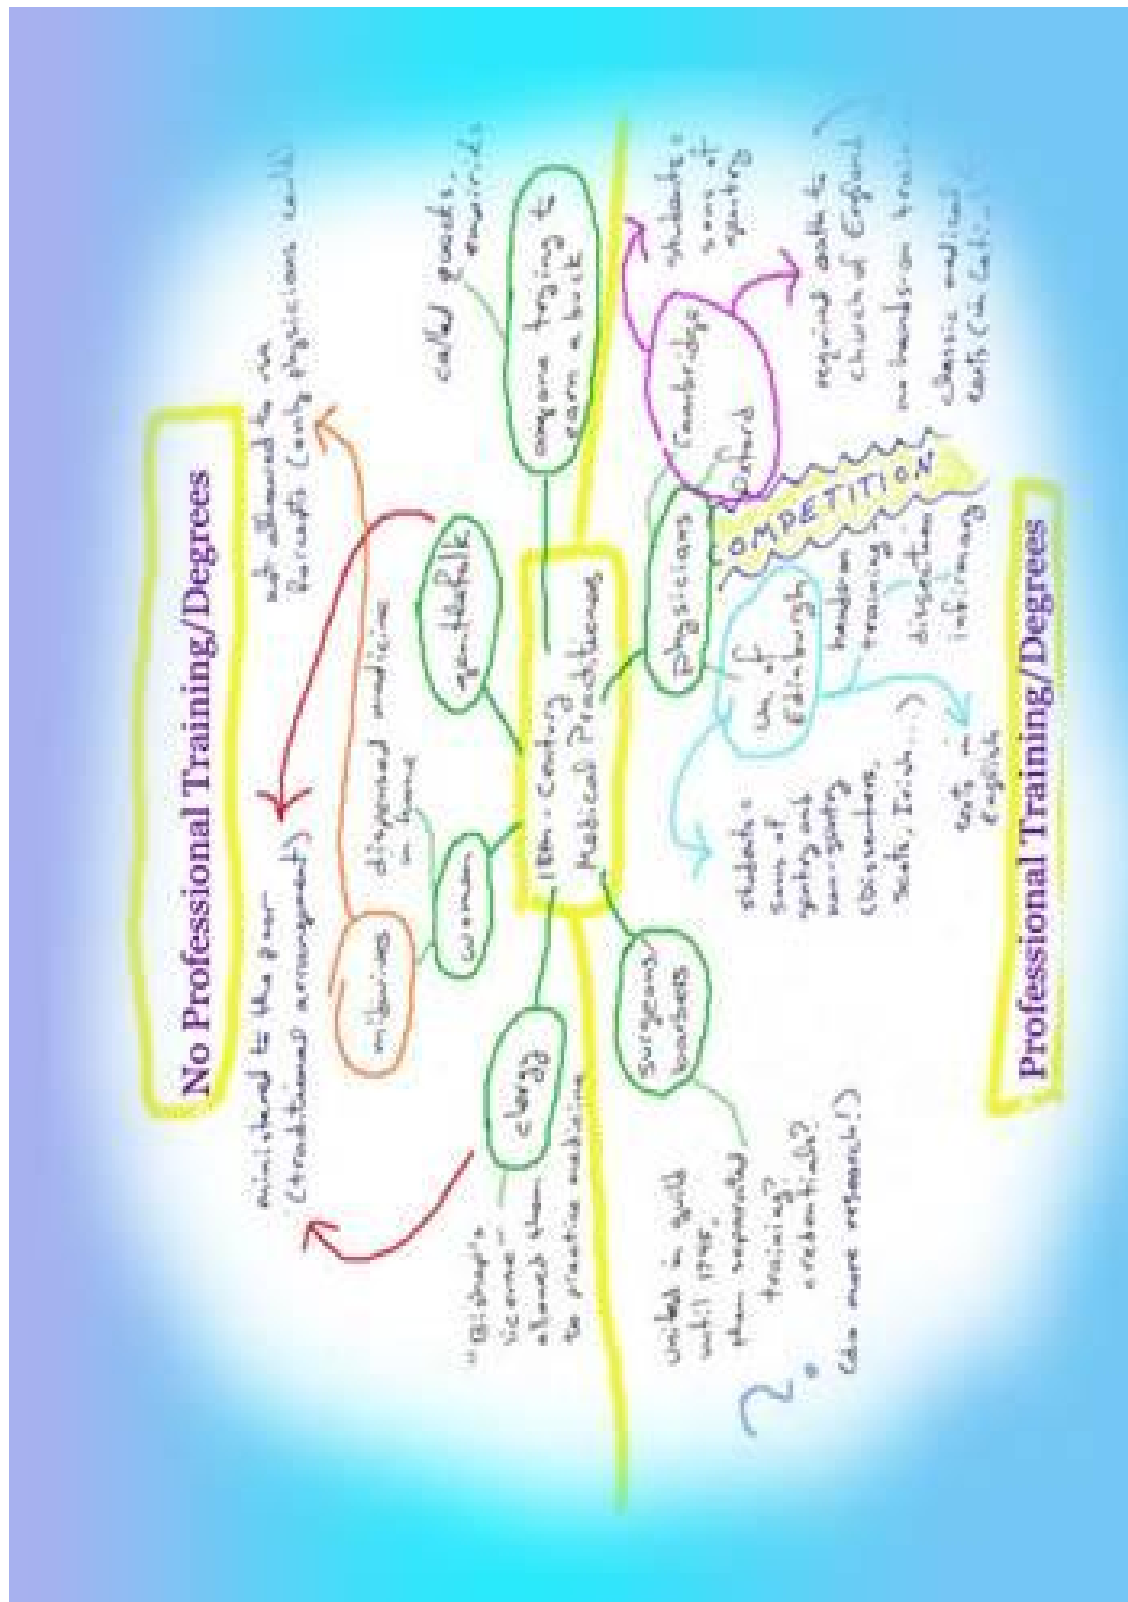 No Professional Training/Degrees
ministered to the poor
(traditional arrangement)
not allowed to use
forceps (only physicians could)
midwives
dispensed medicine
in home
women
gentlefolk
called quacks,
empirics
anyone trying to
earn a buck
clergy
"Bishop's
license"
allowed them
to practice medicine
18th-Century
Medical Practitioners
surgeons
barbers
united in guild
until 1745,
then separated
training?
credentials?
(do more research!)
?
physicians
Cambridge
Oxford
students =
sons of
gentry
required oath to
Church of England
no hands-on
classic medical
texts (in
COMPETITION
Un. of
Edinburgh
hands on
training
dissection
infirmary
students =
sons of
gentry and
non-gentry
(Dissenters,
Scots, Irish...)
texts in
english
Professional Training/Degrees